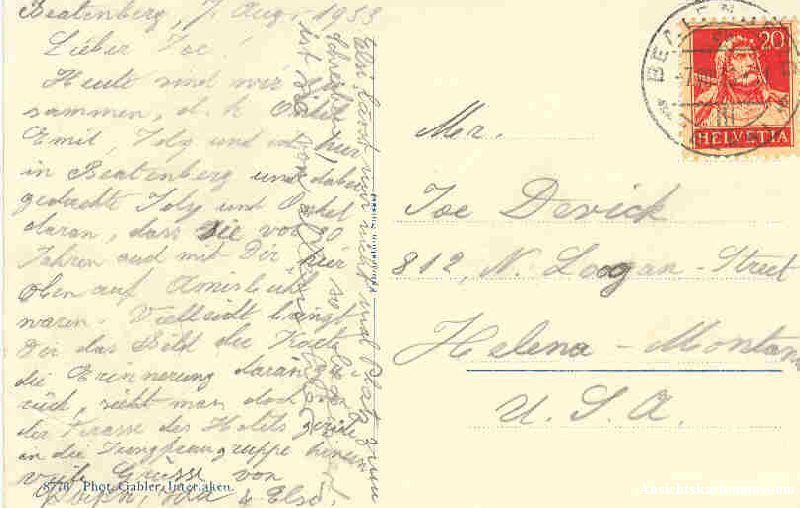 Beatenberg, 7 Aug. 1933
Lieber Joe!
Heute sind wir zu-
sammen, d. h. Onkel
Emil, Idly und ich hier
in Beatenberg und dabei
gedachte Idly und Onkel
daran, dass sie vor 30
Jahren auch mit Dir hier
oben auf Amisbühl
waren. Vielleicht bringt
Dir das Bild die Karte
die Erinnerung daran zu-
rück, sieht man doch von
der Terasse des Hotels gerade
an die Jungfraugruppe hinein
viele Grüsse von
Elsi
8776 Phot. Gabler, Interlaken.
nur nicht mal Platz zum
schreiben, so
ist sie von
Mer.
Joe Devick
812, N. Logan-Street
Helena-Montana
U. S. A.
20
HELVETIA